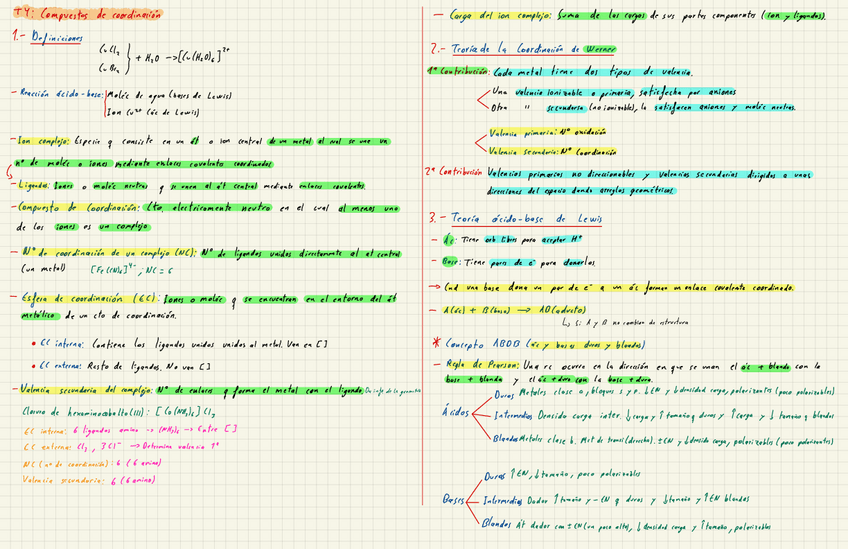 T4: Compuestos de coordinación
1.- Definiciones
CuCl2
CuBr2 } + H2O -> [Cu(H2O)6]2+
- Reacción ácido-base: Moléc de agua (bases de Lewis)
Ion Cu2+ (ác de Lewis)
- Ion complejo: Especie q consiste en un át o ion central de un metal al cual se une un
nº de moléc o iones mediante enlaces covalentes coordinados
- Ligandos: Iones o moléc neutras q se unen al át central mediante enlaces covalentes.
- Compuesto de Coordinación: Cto. electricamente neutro en el cual al menos uno
de los iones es un complejo
- Nº de coordinación de un complejo (NC): Nº de ligandos unidos directamente al at central
(un metal) [Fe(CN)6]4-, NC = 6
- Esfera de coordinación (EC): Iones o moléc q se encuentran en el entorno del át
metálico de un cto de coordinación.
• EC interna: Contiene los ligandos unidos unidos al metal. Van en []
• EC externa: Resto de ligandos. No van []
- Valencia secundaria del complejo: Nº de enlaces q forma el metal con el ligando. Da info de la geometría
Cloruro de hexaminocobalto(III): [Co(NH3)6]Cl3
EC interna: 6 ligandos amino -> (NH3)6 -> Entre []
EC externa: Cl3, 3Cl- -> Determina valencia 1ª
NC (nº de coordinación): 6 (6 amino)
Valencia secundaria: 6 (6 amino)
- Carga del ion complejo: Suma de las cargas de sus partes componentes (ion y ligandos).
2.- Teoría de la Coordinación de Werner
1ª Contribución: Cada metal tiene dos tipos de valencia.
Una valencia ionizable o primaria, satisfecha por aniones
Otra " secundaria (no ionizable), la satisfacen aniones y moléc neutras.
Valencia primaria: Nº oxidación
Valencia secundaria: Nº Coordinación
2ª Contribución Valencias primarias no direccionables y valencias secundarias dirigidas a unas
direcciones del espacio dando arreglos geométricos.
3.- Teoría ácido-base de Lewis
- Ác: Tiene orb libres para aceptar H+
- Base: Tiene pares de e- para donarlos.
-> Cnd una base dona un par de e- a un ác forman un enlace covalente coordinado.
- A(ác) + B(base) -> AB(aducto)
Si A y B no cambian de estructura
* Concepto ABDB (ác y bases duros y blandos)
- Regla de Pearson: Una rc ocurre en la dirección en que se unen el ác + blando con la
base + blanda y el ác + duro con la base + dura.
Ácidos
Duros Metales clase a, bloques s y p. ↓EN y ↓densidad carga, polarizantes (poco polarizables)
Intermedios Densidad carga inter. ↓carga y ↑tamaño q duros y ↑carga y ↓ tamaño q blandos
Blandos Metales clase b. Met de transi (derecha). ±EN y ↓densidad carga, polarizables (poco polarizantes)
Bases
Duras ↑EN, ↓tamaño, poco polarizables
Intermedias Dador ↑tamaño y -EN q duras y ↓tamaño y ↑EN blandas
Blandas Át dador con ±EN (un poco alta), ↓densidad carga y ↑tamaño, polarizables